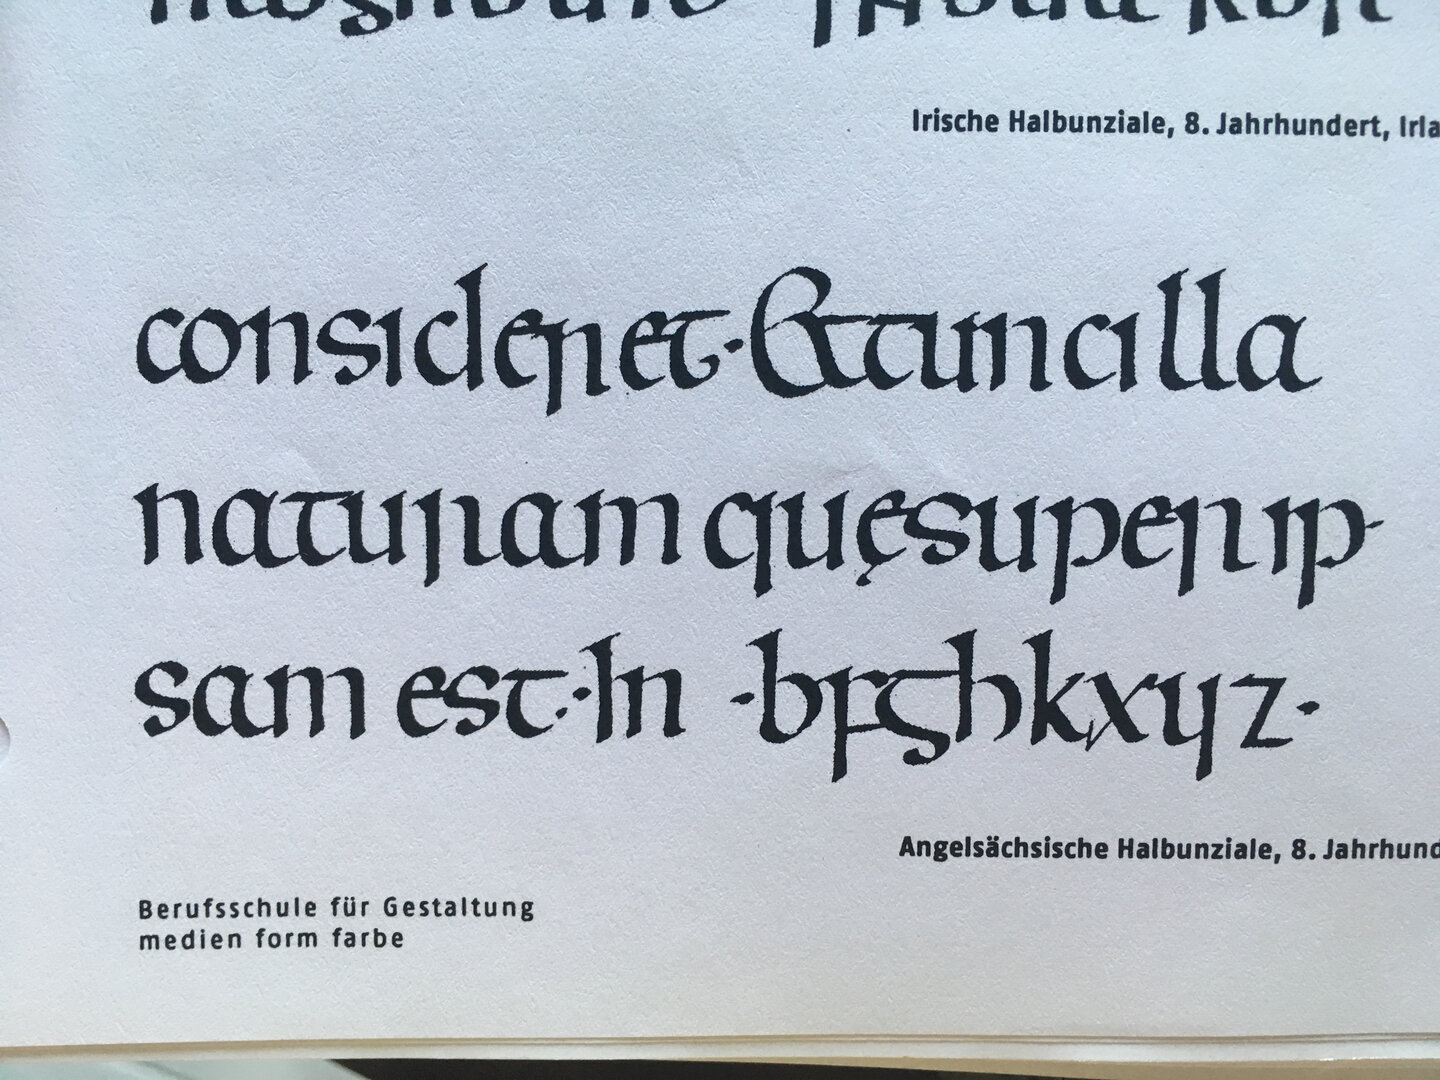 Irische Halbunziale, 8. Jahrhundert, Irla
consideret·&cum illa
naturam quęsuper ip-
sam est·In ·bfghkxyz·
Angelsächsische Halbunziale, 8. Jahrhund
Berufsschule für Gestaltung
medien form farbe